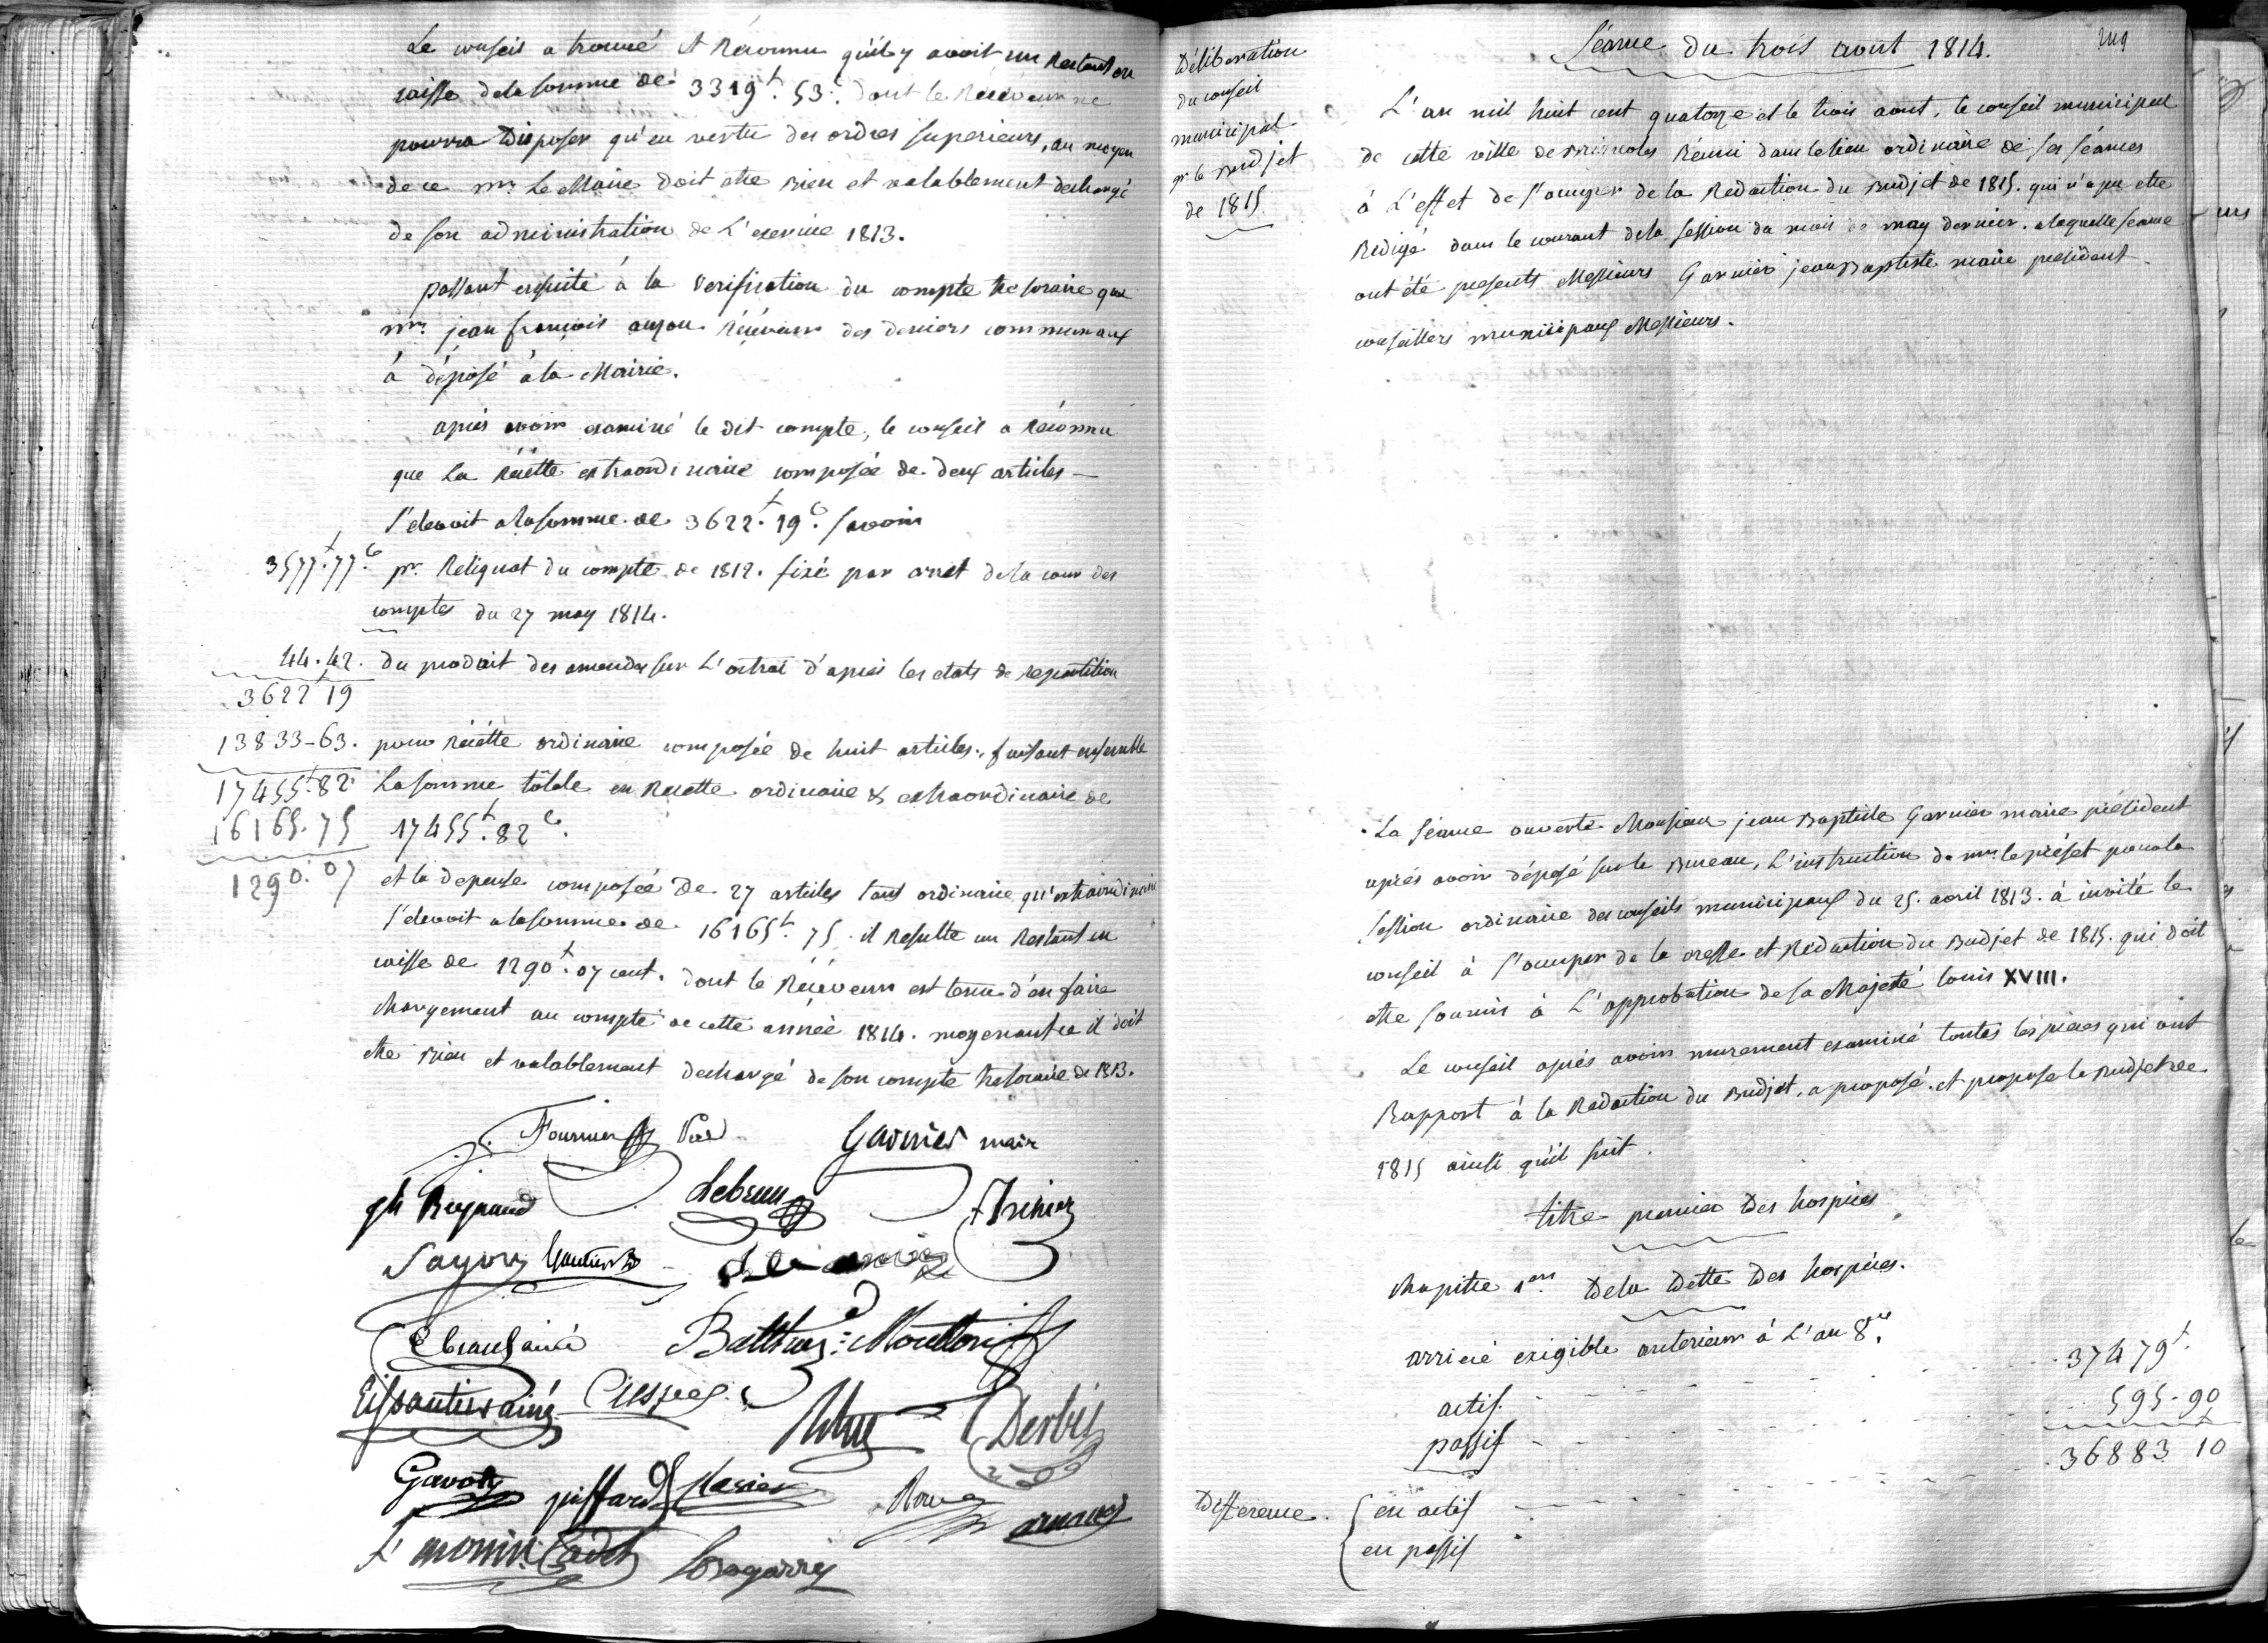 Le conseil a trouvé et Réconnu qu'il y avoit un Restant en
caisse de la somme de 3319f. 53c. dont le Réceveur ne
pourra Disposer qu'en vertu des ordres superieurs, au moyen
de ce Mr. Le Maire doit etre Bien et valablement dechargé
de son administration de L'exercice 1813.
passant ensuite à la Verification du compte tresoraire que
Mr. jean françois Réceveur des deniers communaux
à déposé à la Mairie.
aprés avoir examiné le dit compte, le conseil a Réconnu
que La Récette extraordinaire composée de deux articles —
s'elevoit a la somme de 3622f. 19c. savoir
3577f. 77c. pr. Reliquat du compte de 1812. fixé par arret de la cour des
comptes du 27 may 1814.
44. 42. du produit des amendes sur L'octroi d'aprés les etats de repartition
3622 19
13833-63. pour Récétte ordinaire composée de huit articles, faisant ensemble
17455f. 82 La somme totale en Recette ordinaire & extraordinaire de
16165. 75 17455f. 82c.
1290. 07 et la depense composée de 27 articles tant ordinaire qu'extraordinaire
s'elevoit a la somme de 16165f. 75. il Resulte un Restant en
caisse de 1290f. 07 cent. dont le Réceveur est tenu d'en faire
chargement au compte de cette année 1814. moyenant ce il doit
etre Bien et valablement dechargé de son compte tresoraire de 1813.
Fournier Garnier maire
Reynaud Lebrun
Gautier
Ebrard ainé Balthaz: Moutton
Eissautier ainé Crespel
Derbés
Gavoty piffard
Roux arnaud
L' monin Cadet
Déliberation
du conseil
municipal
pr. le Budjet
de 1815
Séance du trois aout 1814.
L'an mil huit cent quatorze et le trois aout, le conseil municipal
de cette ville de Brignoles Réuni dans le lieu ordinaire de ses séances
à L'effet de s'occuper de la Redaction du Budjet de 1815. qui n'a pu etre
Redigé dans le courant de la session du mois de may dernier. a laquelle seance
ont été presents Messieurs Garnier jean Baptiste maire president
conseillers municipaux Messieurs.
La Séance ouverte Monsieur jean Baptiste Garnier maire président
aprés avoir déposé sur le Bureau, L'instruction de Mr. le préfet pour la
session ordinaire des conseils municipaux du 25. avril 1813. à invité le
conseil à s'occuper de la dresse et Rédaction du Budjet de 1815. qui doit
etre soumis à L'approbation de sa Majesté Louis XVIII.
Le conseil aprés avoir murement examiné toutes les piéces qui ont
Rapport à la Redaction du Budjet, a proposé et propose le Budjet de
1815 ainsi qu'il suit.
titre premier Des hospices
chapitre 1er. De la Dette Des hospices.
arrieré exigible anterieur à L'an 8me.
actif. - - - 37479f.
passif - - - 595-90
Difference. { en actif - - - 36883 10
en passif